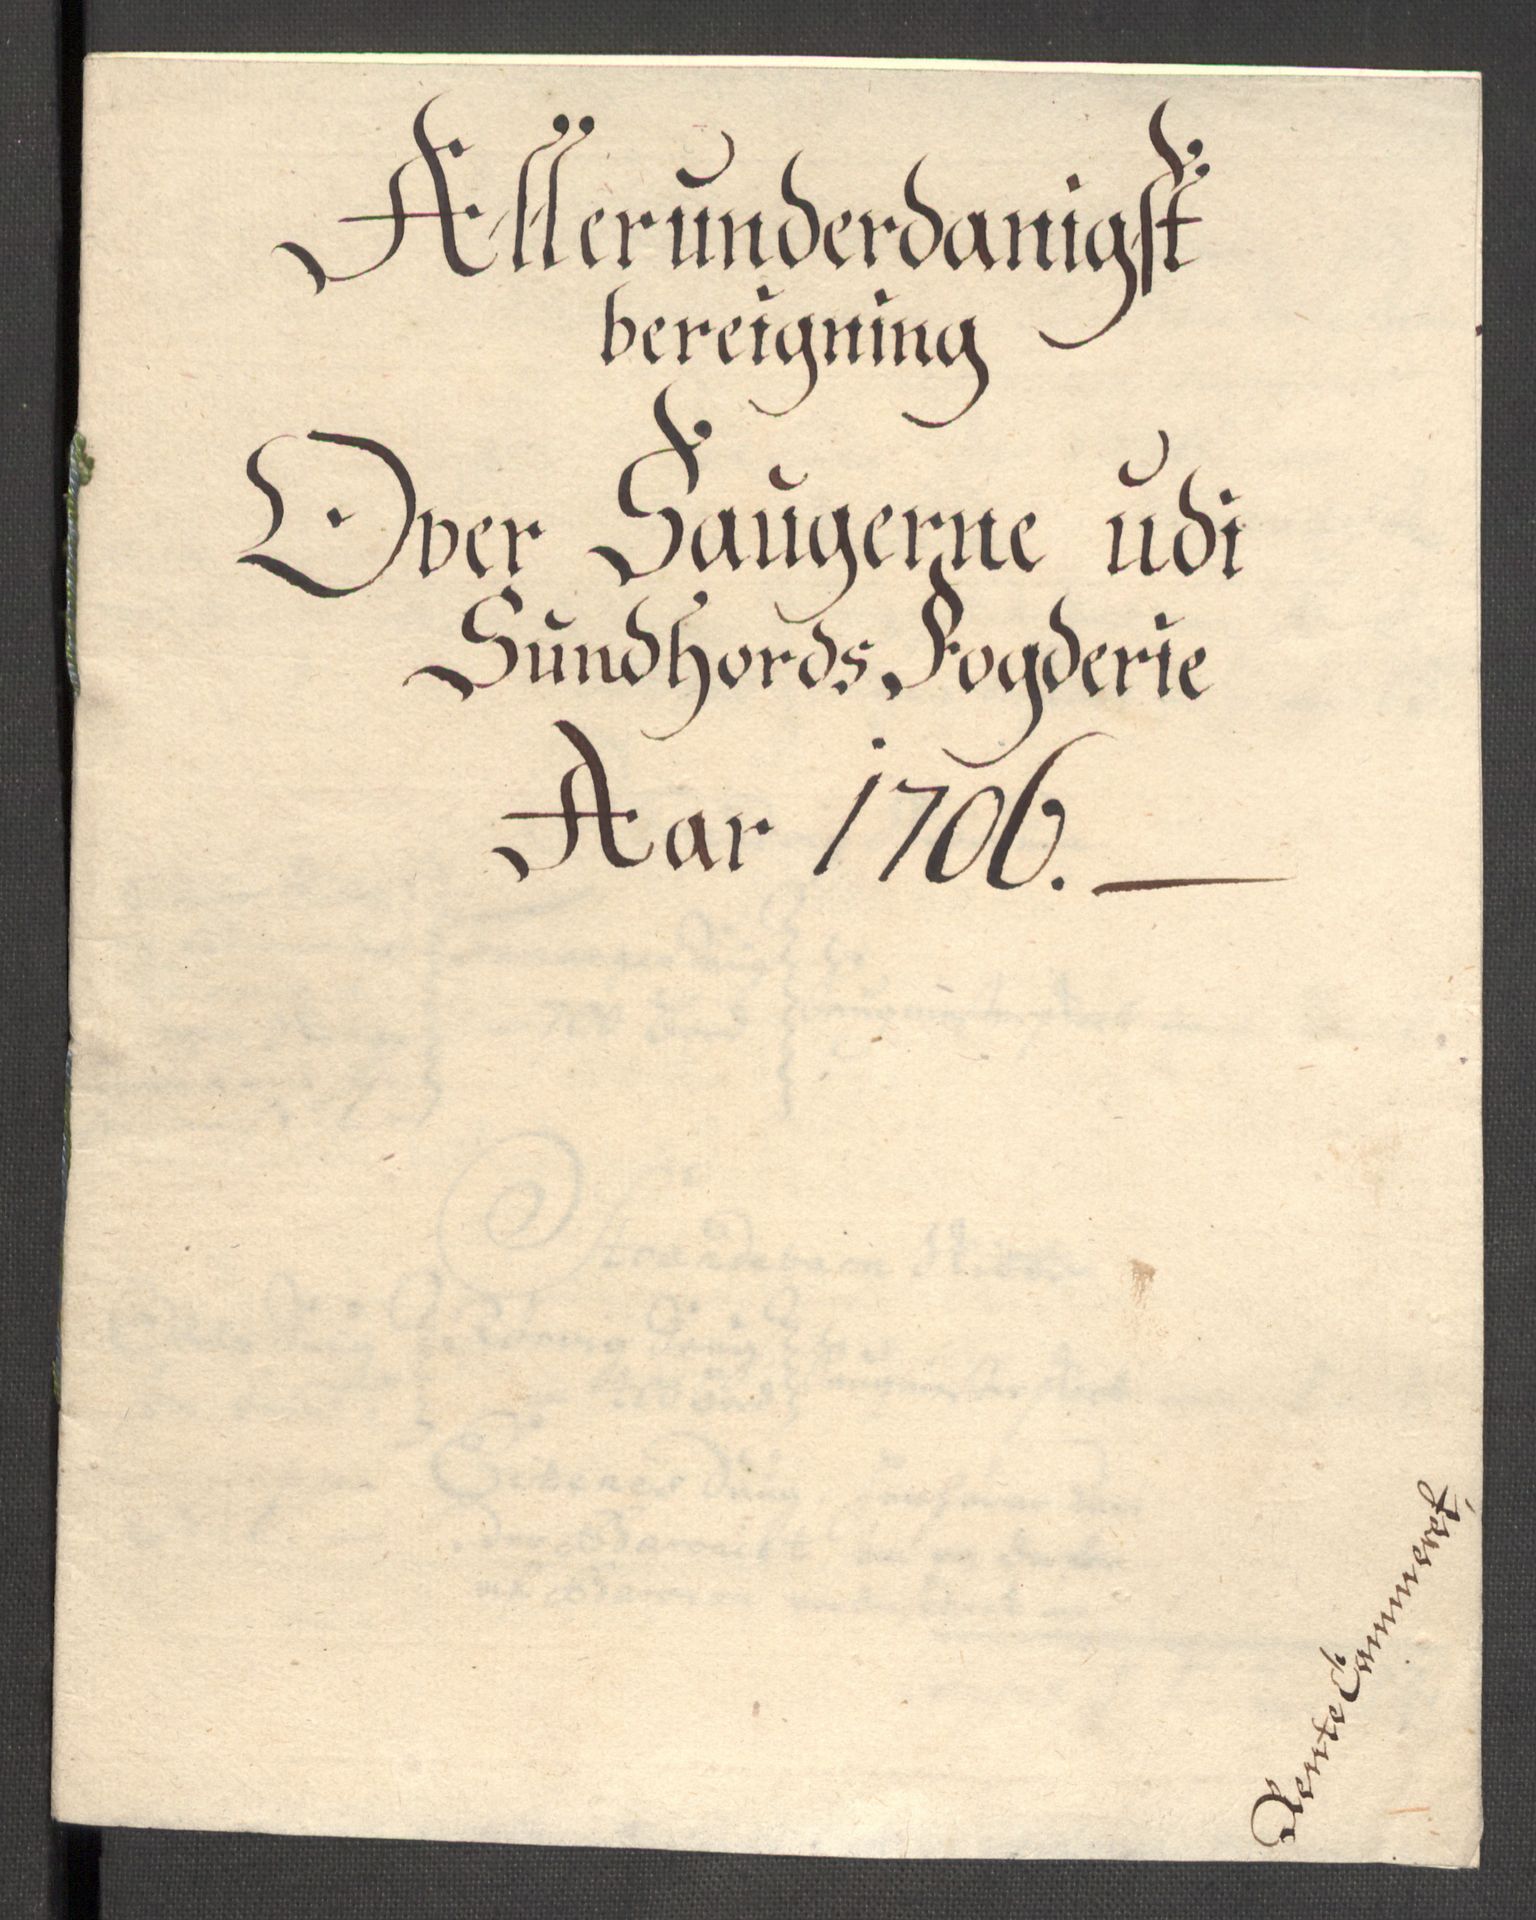 Allerunderdanigst
bereigning
Over Saugerne udi
Sundhords Fogderie
Aar 1706.
Rente Cammeret